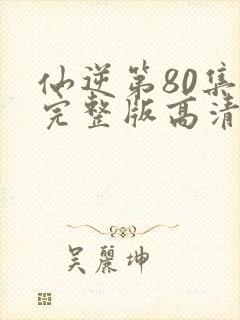 仙逆第80集
完整版高清
吴丽坤